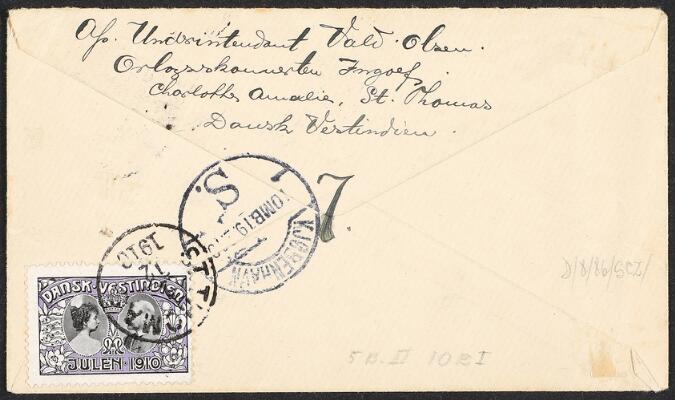 Afs. Underintendant Vald. Olsen.
Orlogsskonnerten Ingolf,
Charlotte Amalie, St. Thomas
Dansk Vestindien.
7.
KJØBENHAVN
OMB.19.
S.
ST. THOMAS
12
1910
DANSK VESTINDIEN
JULEN · 1910
5 B. II 10 B I